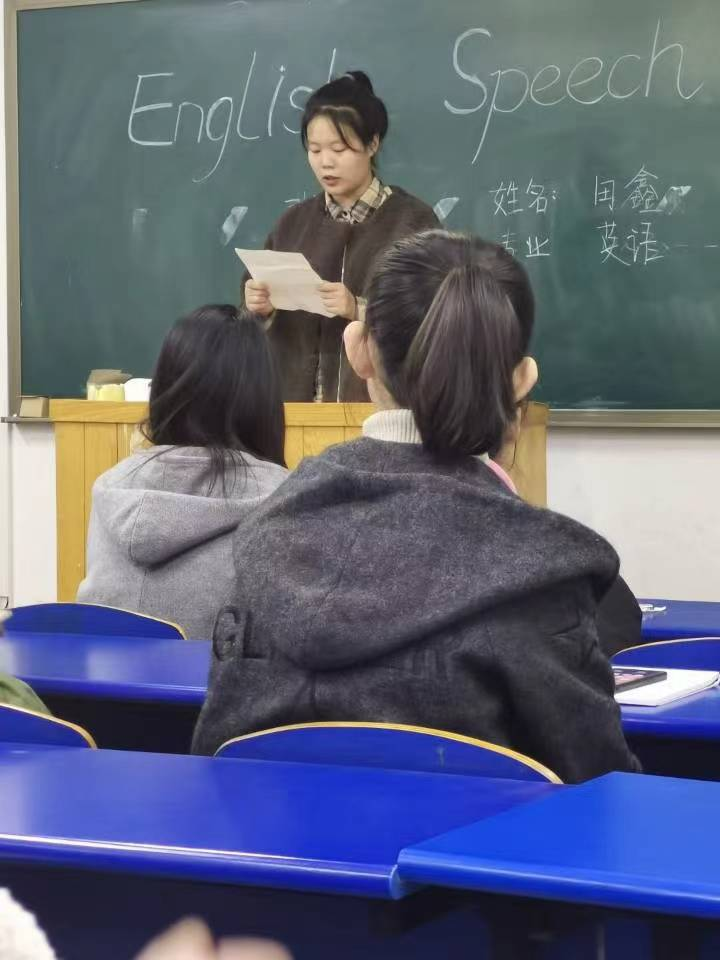 English Speech
姓名: 田鑫
专业 英语
GL